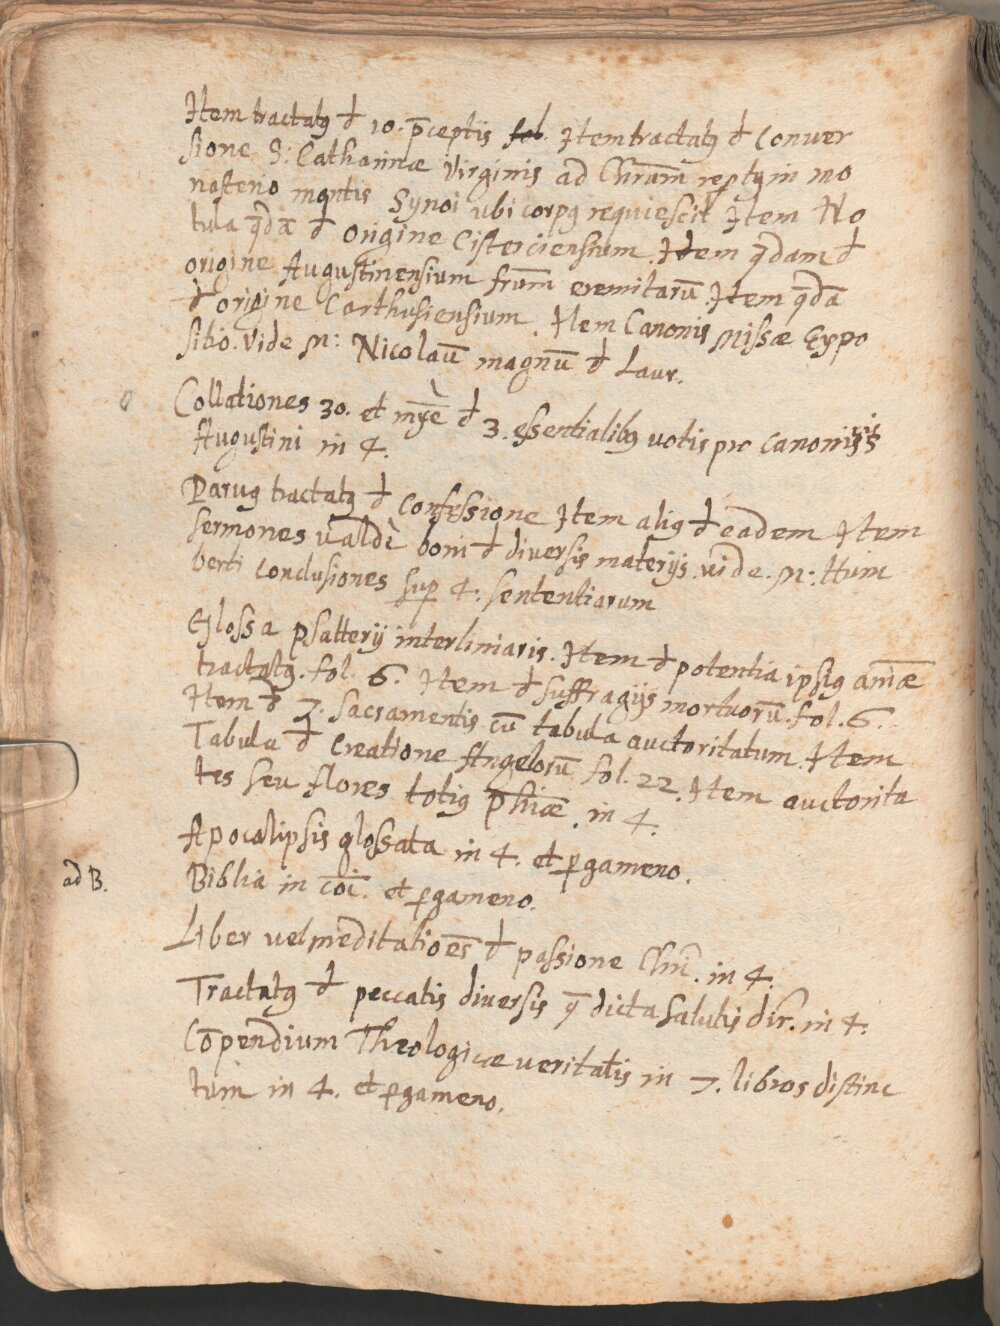 Item tractatꝯ đ 10. p̄ceptis fol. Item tractatꝯ đ Conver
sione S: Catharinæ Virginis ad Chr̄um̄ reptꝯ in mo
nasterio montis Synoi ubi corpꝯ requiescit Item No
tula q̄dā đ origine Cisterciensium. Item q̄dam đ
origine Augustinensium fr̄um eremitarū. Item q̄dā
đ origine Carthusiensium. Item Canonis Missæ Expo
sitio. Vide N: Nicolaū magnū đ Laur.
Collationes 30. et đ 3. essentialibꝯ votis pro Canonissis
Augustini in 4.
Parvꝯ tractatꝯ đ Confessione Item aliꝯ đ eadem Item
Sermones valdè boni đ diversis materijs. vide. N: Hum
berti conclusiones sup 4: sententiarum
Glossa psalterij interliniaris. Item đ potentia ipsiꝯ animæ
tractatꝯ. fol. 6. Item đ suffragijs mortuorū. fol. 6.
Item đ 7. Sacramentis cū tabula auctoritatum. Item
Tabula đ Creatione Angelorū fol. 22. Item auctorita
tes seu flores totiꝯ phiæ. in 4.
Apocalipsis glossata in 4. et ꝑgameno.
ad B. Biblia in cōi. et ꝑgameno.
Liber vel meditatioēs đ passione Chr̄i. in 4.
Tractatꝯ đ peccatis diversis q̄ dicta salutis dir̄. in 4.
Cōpendium Theologicæ veritatis in 7. libros distinc
tum in 4. et ꝑgameno.